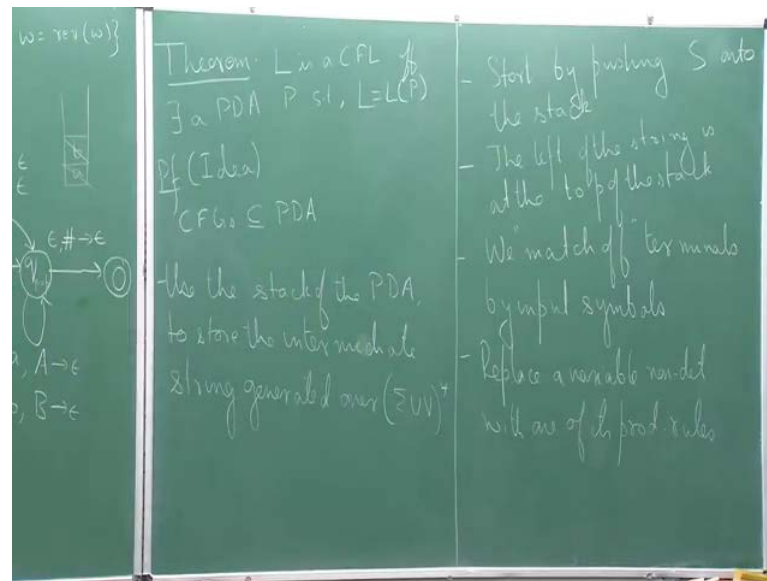 w = rev(w)}
b
a
ε
ε
ε, # → ε
a, A → ε
b, B → ε
Theorem: L is a CFL iff
∃ a PDA P s.t, L = L(P)
Pf (Idea)
CFGs ⊆ PDA
- Use the stack of the PDA,
to store the intermediate
string generated over (Σ∪V)*
- Start by pushing S onto
the stack
- The left of the string is
at the top of the stack
- We "match off" terminals
by input symbols
- Replace a variable non-det
with one of its prod. rules